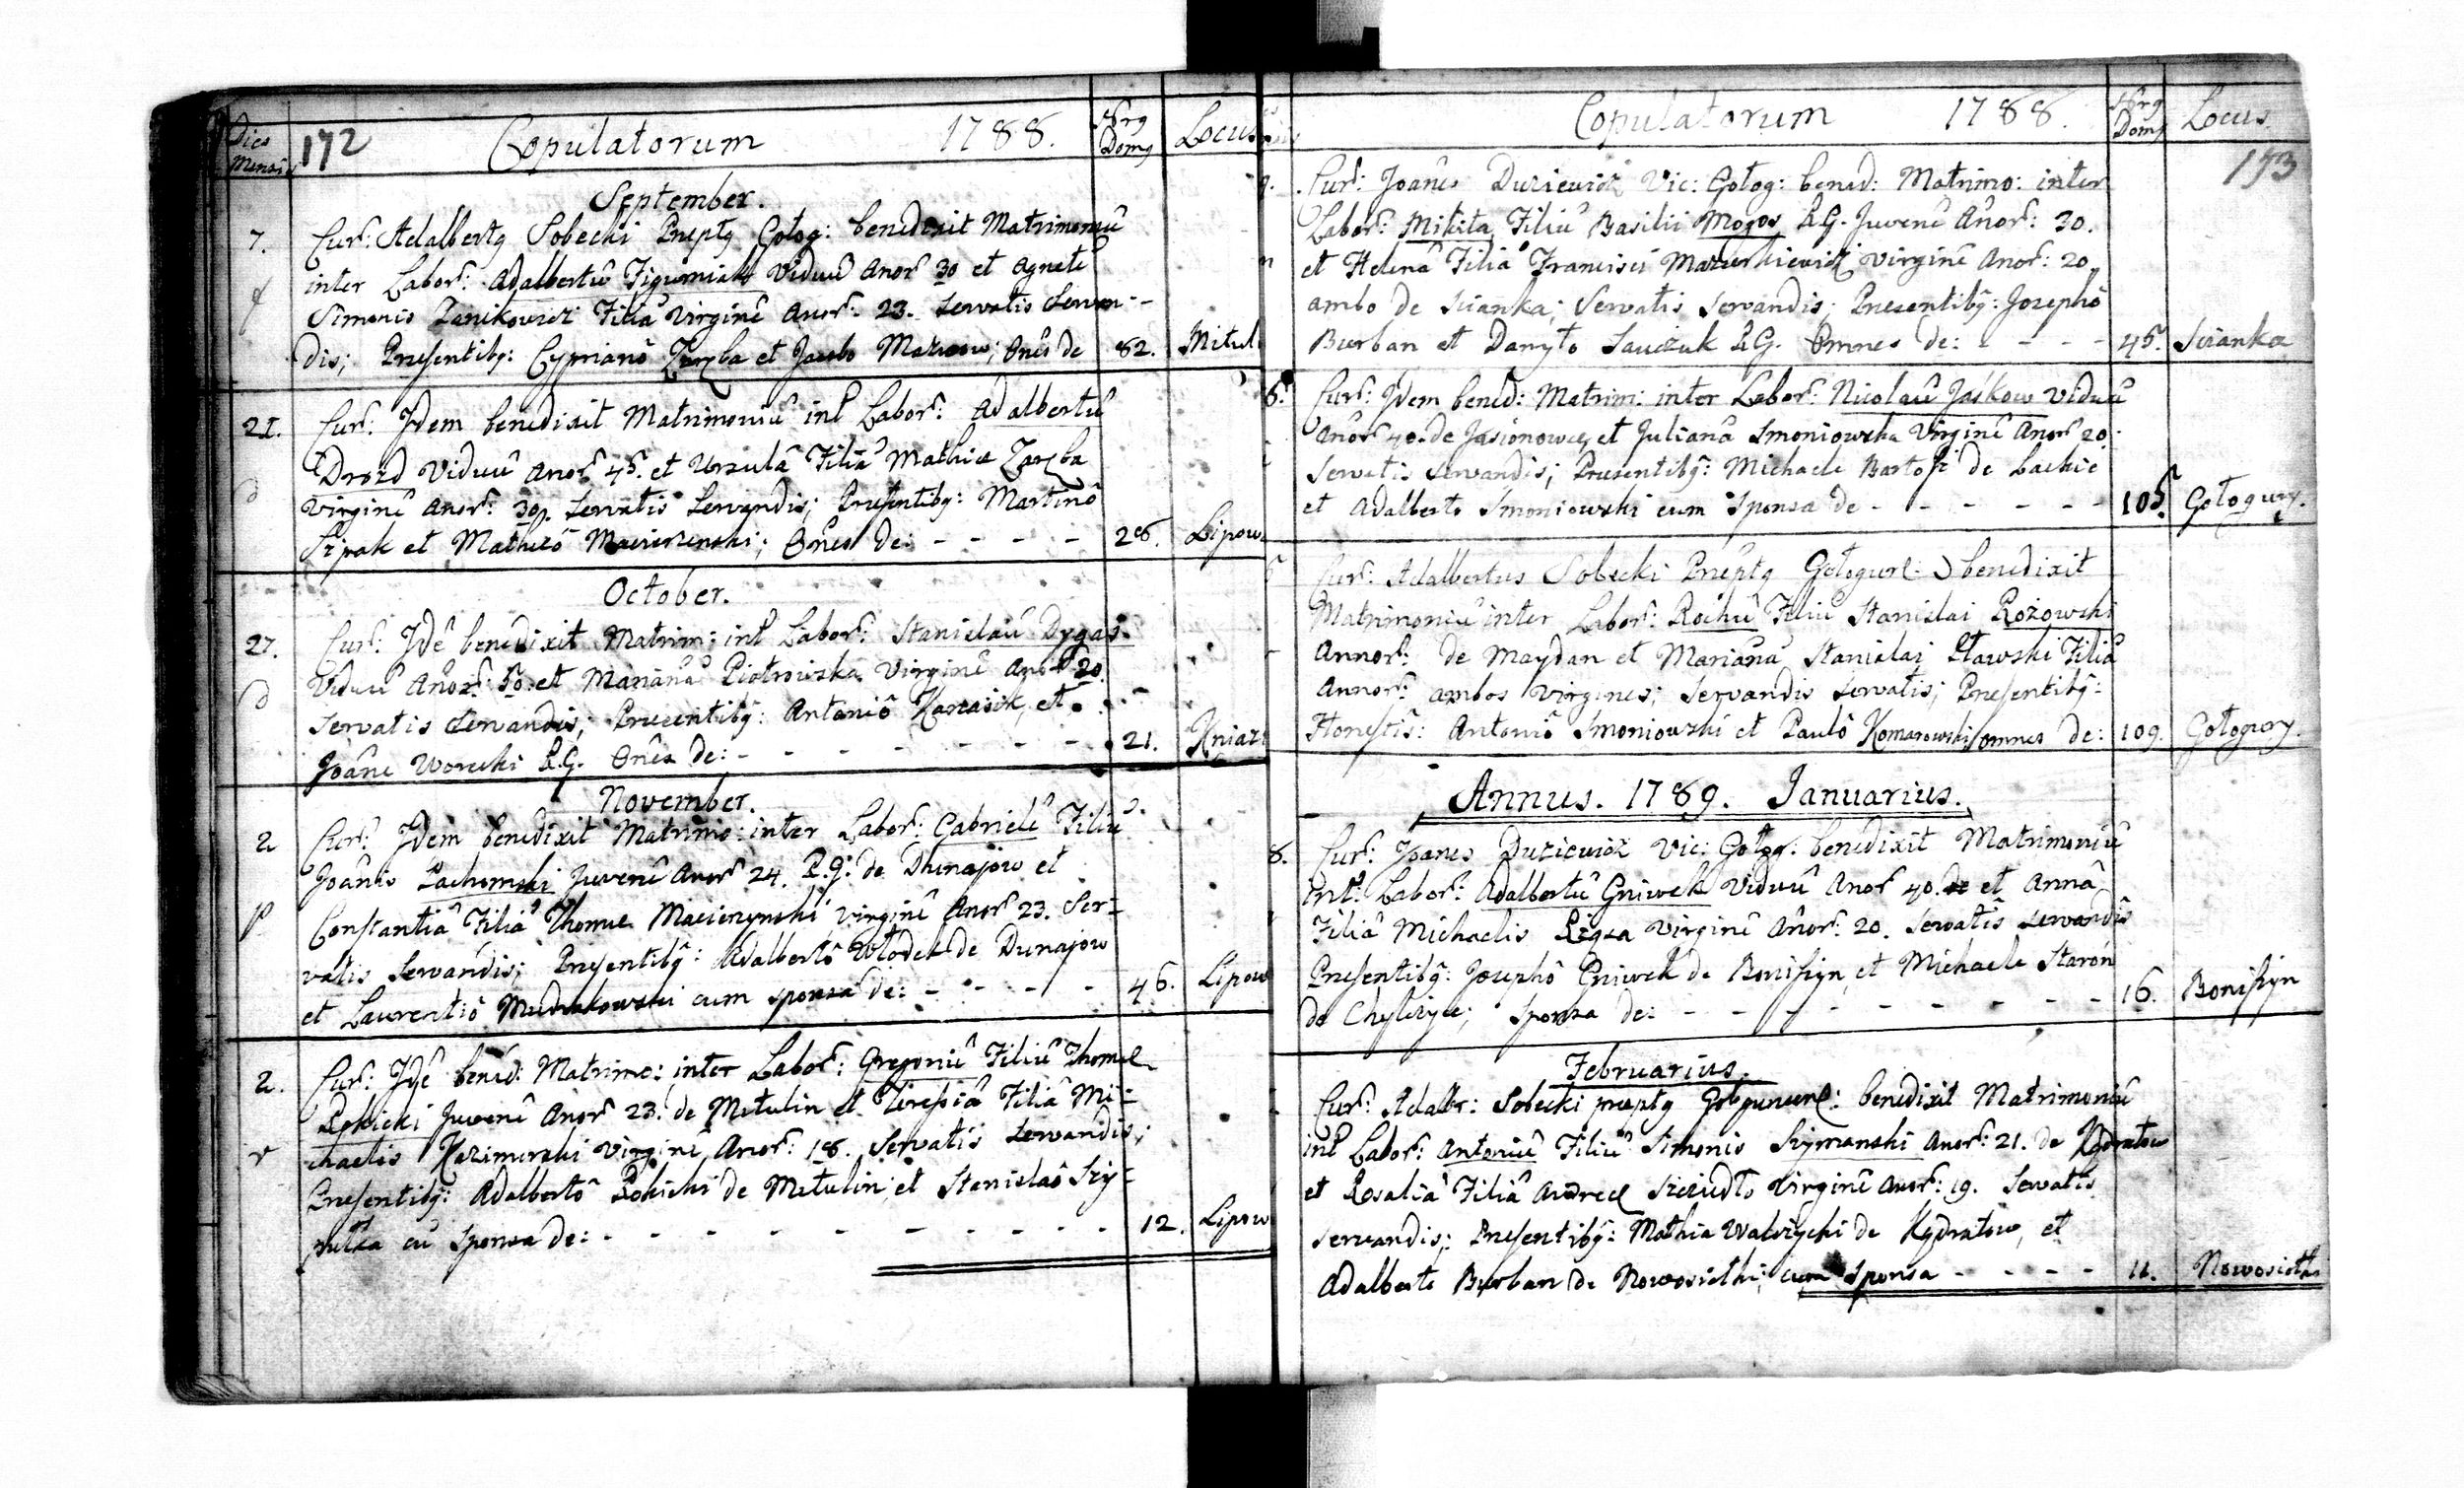 Dies Mensis 172 Copulatorum 1788. Nrg Domg Locus
September.
7. Cur: Adalbertg Sobecki Preptg Gołog: benedixit Matrimoniû
inter Labor: Adalbertû Figurniak Viduû Anor 30 et Agnetê
Simonis Filiâ Virginê Anor: 23. Servatis Servan-
dis; Presentibg: Cyprianô Zaręba et Jacobo Mazurow; Onês de 82. Mitul
21. Cur: Idem benedixit Matrimoniû int Labor: Adalbertû
Drozd Viduû Anor 45. et Urszulâ Filiâ Mathiæ Zaręba
Virginê Anor: 30. Servatis Servandis; Presentibg: Martinô
et Matheô Onês de: - - - - 28. Lipow
October.
27. Cur: Idê benedixit Matrim: int Labor: Stanislaû Dygas
Viduû Anor: 50. et Marianâ Piotrowska Virginê Anor 20.
Servatis Servandis; Presentibg: Antoniô et
Joâne Worecki R.G. Onês de: - - - - - - - 21. Kniaz
November.
2 Cur: Idem benedixit Matrimo: inter Labor: Gabrielê Filiû
Joânis Pachomski Juvenê Anor 24. R.G: de Dunajow et
Constantiâ Filiâ Thomæ Macierzynski Virginê Anor 23. Ser-
vatis Servandis; Presentibg: Adalbertô Włodek de Dunajow
et Laurentiô cum sponsa de: - - - - 46. Lipow
2. Cur: Idê bened: Matrimo: inter Labor: Gregoriû Filiû Thomæ
Rokicki Juvenê Anor 23. de Mitulin et Teresiâ Filiâ Mi-
chaelis Kazimirski Virginê Anor: 18. Servatis Servandis;
Presentibg: Adalbertô Rokicki de Mitulin et Stanislaô Szy-
pulka cû Sponsa de: - - - - - - - - 12. Lipow
Copulatorum 1788. Nrg Domg Locus.
173
Cur: Joânes Duziewicz Vic: Gołog: bened: Matrimo: inter
Labor: Mikita Filiû Basilii Mogos R.G. Juvenê Anor: 30.
et Helenâ Filiâ Francisci Mazurkiewicz Virginê Anor: 20
ambo de Scianka; Servatis Servandis; Presentibg: Josephô
Burban et Danyło Sawczuk R.G. Omnes de: - - - - 45. Scianka
Cur: Idem bened: Matrim: inter Labor: Nicolaû Jaśkow Viduû
Anor 40. de et Julianâ Smoniowska Virginê Anor 20.
Servatis Servandis; Presentibg: Michaele de Lackie
et Adalberto Smoniowski cum Sponsa de - - - - - - 105. Gołogury.
Cur: Adalbertus Sobecki Preptg Gołogure: benedixit
Matrimoniû inter Labor: Rochû Filiû Stanislai Rożowski
Annor: de Maydan et Marianâ Stanislai Sławski Filiâ
Annor: ambos Virgines; Servandis Servatis; Presentibg:
Honestis: Antoniô Smoniowski et Paulô Komarowski omnes de: 109. Gołogory.
Annus. 1789. Ianuarius.
8. Cur: Joanes Duziewicz Vic: Gołog: benedixit Matrimoniû
Int: Labor: Adalbertû Gniwek Viduû Anor 40. de et Annâ
Filiâ Michaelis Virginê Anor: 20. Servatis Servandis
Presentibg: Josephô Gniwek de Boniszyn et Michaele Staroń
de Chyliczyce; Sponsa de: - - - - - - - - 16. Boniszyn
Februarius.
Cur: Adalbr: Sobecki preptg benedixit Matrimoniû
int Labor: Antoniû Filiû Simonis Szymanski Anor: 21. de Kądratow
et Rosaliâ Filiâ Andreæ Szczudło Virginê Anor: 19. Servatis
servandis; Presentibg: Mathia Walczycki de Kądratow, et
Adalberto Burban de Nowosiołki; cum Sponsa - - - - 11. Nowosiołki